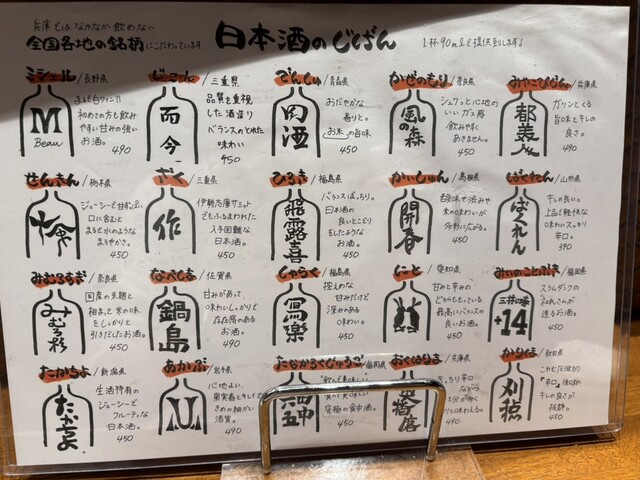 兵庫ではなかなか飲めない
全国各地の銘柄にこだわっています。
日本酒のじげん
1杯90mlを提供致します♪
ミシェル/長野県
M
Beau
まるで白ワイン!?
初めての方も飲み
やすい甘みの強い
お酒。
490
じこん/三重県
而今
品質を重視
した酒造り
バランスのとれた
味わい
450
でんしゅ/青森県
田酒
おだやかな
香りと。
お米の旨味
450
かぜのもり/奈良県
風の森
シュワッと心地の
いいガス感
飲みやすく
あきません。
450
みやこびじん/兵庫県
都美人
ガツンとくる
旨味とキレの
良さ。
450
せんきん/栃木県
ジューシーで甘ずっぱい
口に含むと
まるで水のような
まろやかさ。
450
ざく/三重県
作
伊勢志摩サミット
でもふるまわれた
入手困難な
日本酒。
450
ひろき/福島県
飛露喜
バランスばっちり。
日本酒の
良いとこどり
をしたような
お酒。
450
かいしゅん/島根県
開春
酸味や渋みや
米の味わいが
多彩に広がる。
450
ばくれん/山形県
ばくれん
キレの良い。
上品で軽快な
味わいスッキリ
辛口。
390
みむろすぎ/奈良県
みむろ杉
国産の米麹と
相まって米の味
をしっかりと
引きだしたお酒。
450
なべしま/佐賀県
鍋島
甘みがあって、
味わいしっかりで
存在感のある
お酒。
490
しゃらく/福島県
寫楽
控えめな
甘みだけど
深みのある
味わい。
450
にと/愛知県
甘みと辛みの
どちらもたっている
最高にいいバランスの
良いお酒。
450
みいのことぶき/福岡県
三井の寿
+14
スラムダンクの
お酒。
450
たかちよ/新潟県
たかちよ
生酒特有の
ジューシーで
フルーティな
日本酒。
450
あかぶ/岩手県
心地よい、
果実香とキレとき
きめの細かい
酒質。
490
たなかろくじゅうご/福岡県
六五中
究極の食中酒。
450
おくはりま/兵庫県
490
かりほ/秋田県
刈穂
これぞ
辛口。後切れ
キレの良さが
抜群。
450